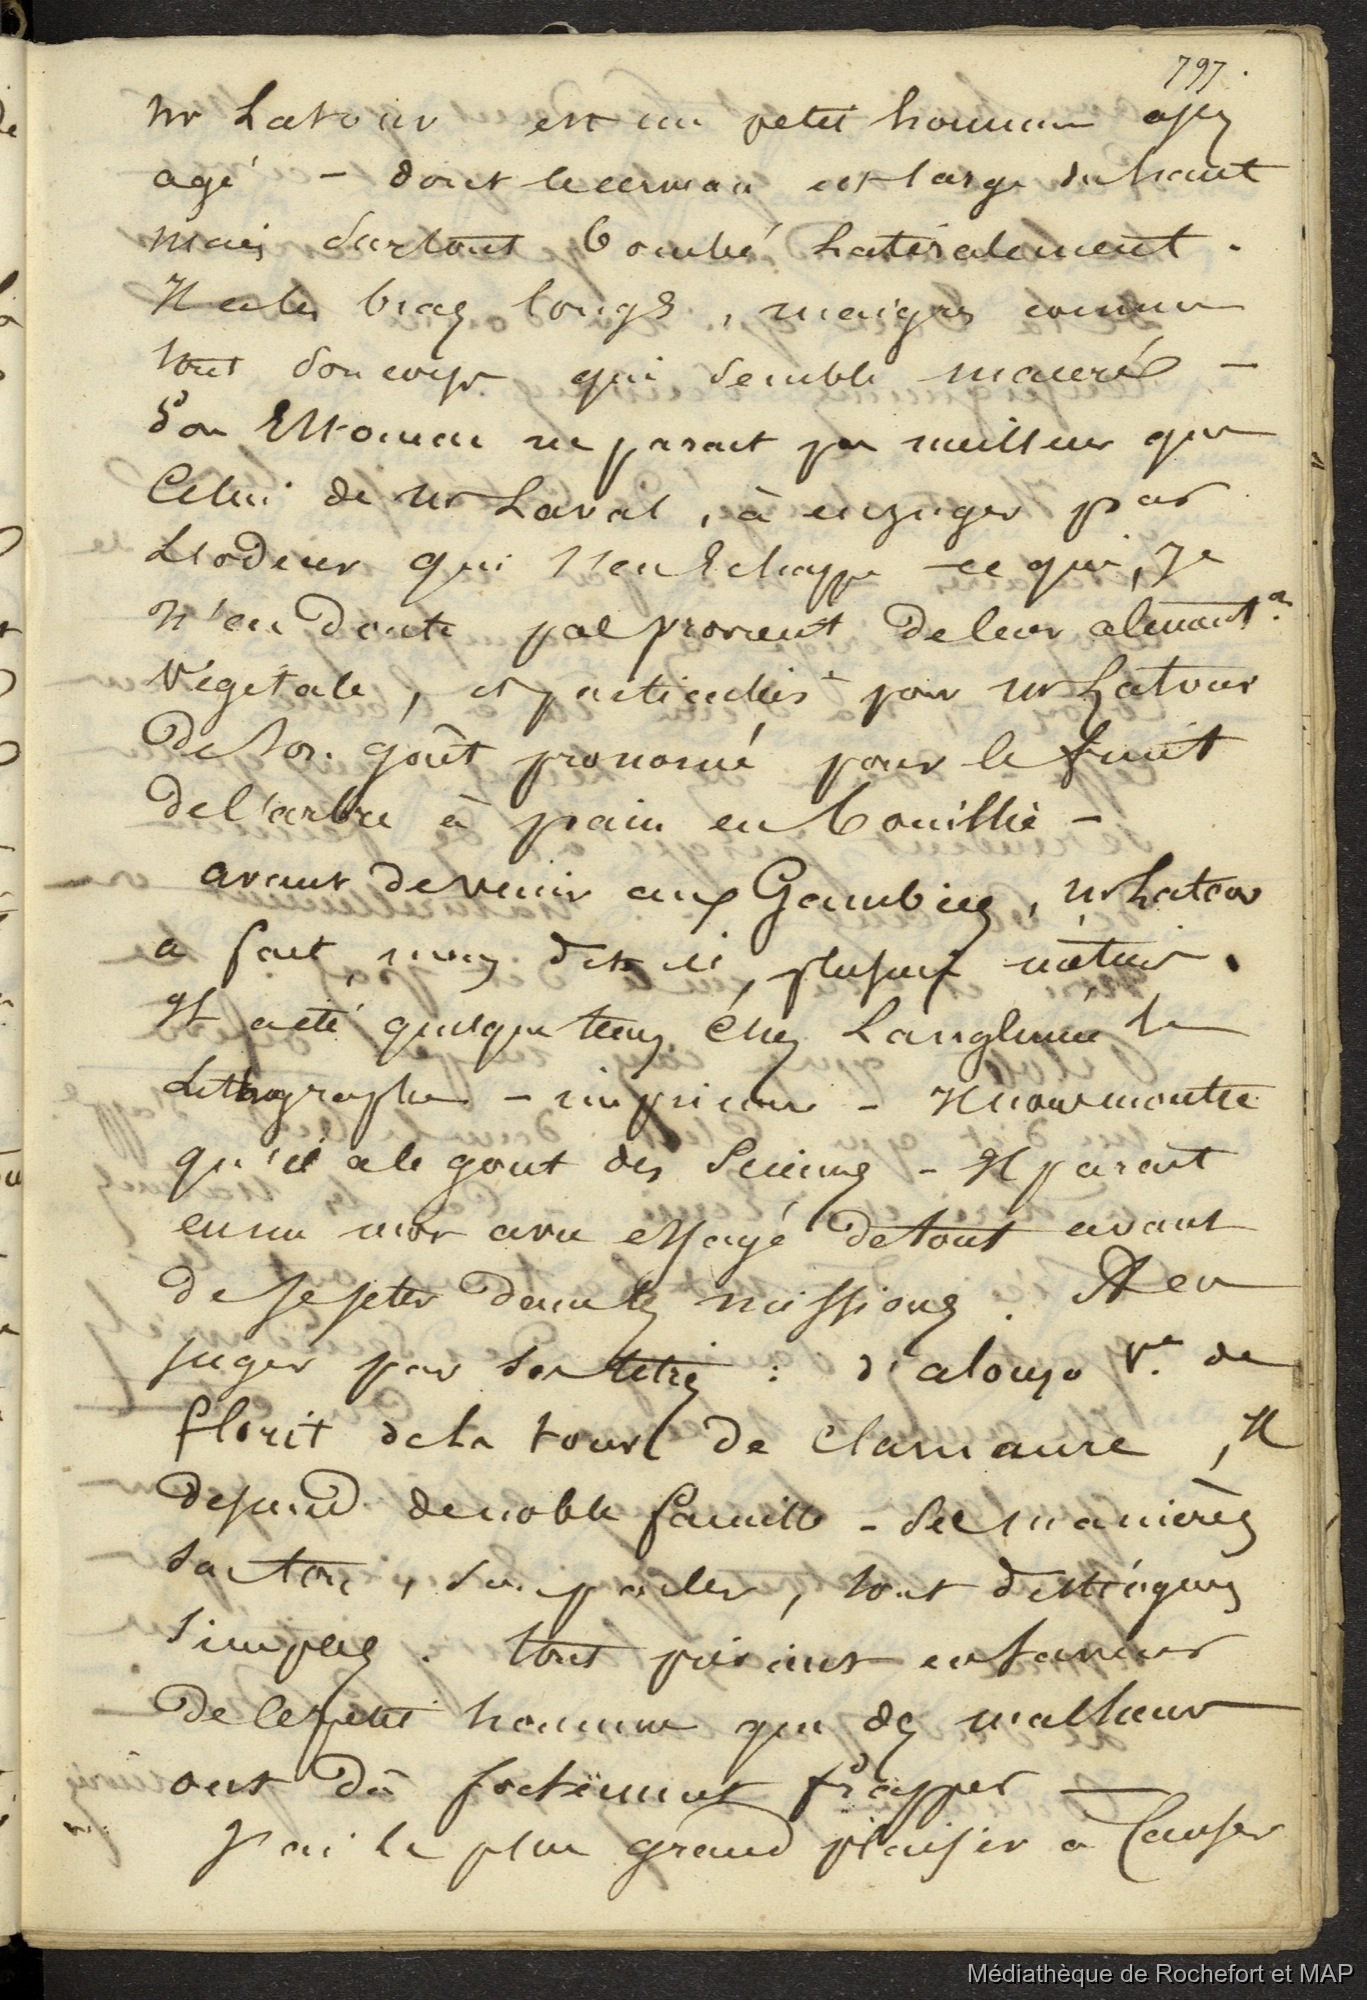 797.
Mr Latour est un petit homme assez
agé – dont le cerveau est large du haut
mais surtout bombé latéralement.
Il a les bras longs, maigres comme
tout son corps qui semble macéré –
Son Estomac ne parait pas meilleur que
Celui de Mr Laval, à en juger par
L'odeur qui s'en Echappe – ce qui, je
n'en Doute pas provient de leur alimenton
Végétale, et particulièrt pour Mr Latour
De son goût prononcé pour le fruit
de l'arbre à pain en bouillie –
avant de venir aux Gambier, Mr Latour
a fait, nous dit-il, plusieurs métiers.
Il a été quelque temps chez Langlumé le
Lithographe – imprimeur – Il nous montre
qu'il a le gout des Sciences – Il parait
en un mot avoir essayé de tout avant
de se jeter dans les missions. A en
juger par ses titres : d'alonzo Vte de
florit de la tour de Clamaure, Il
descend de noble famille – Ses manières
son ton, son parler, sont distingués
simples. tout prévient en faveur
De ce petit homme que des malheurs
ont Dû fortement frapper —
J'ai le plus grand plaisir a Causer
Médiathèque de Rochefort et MAP